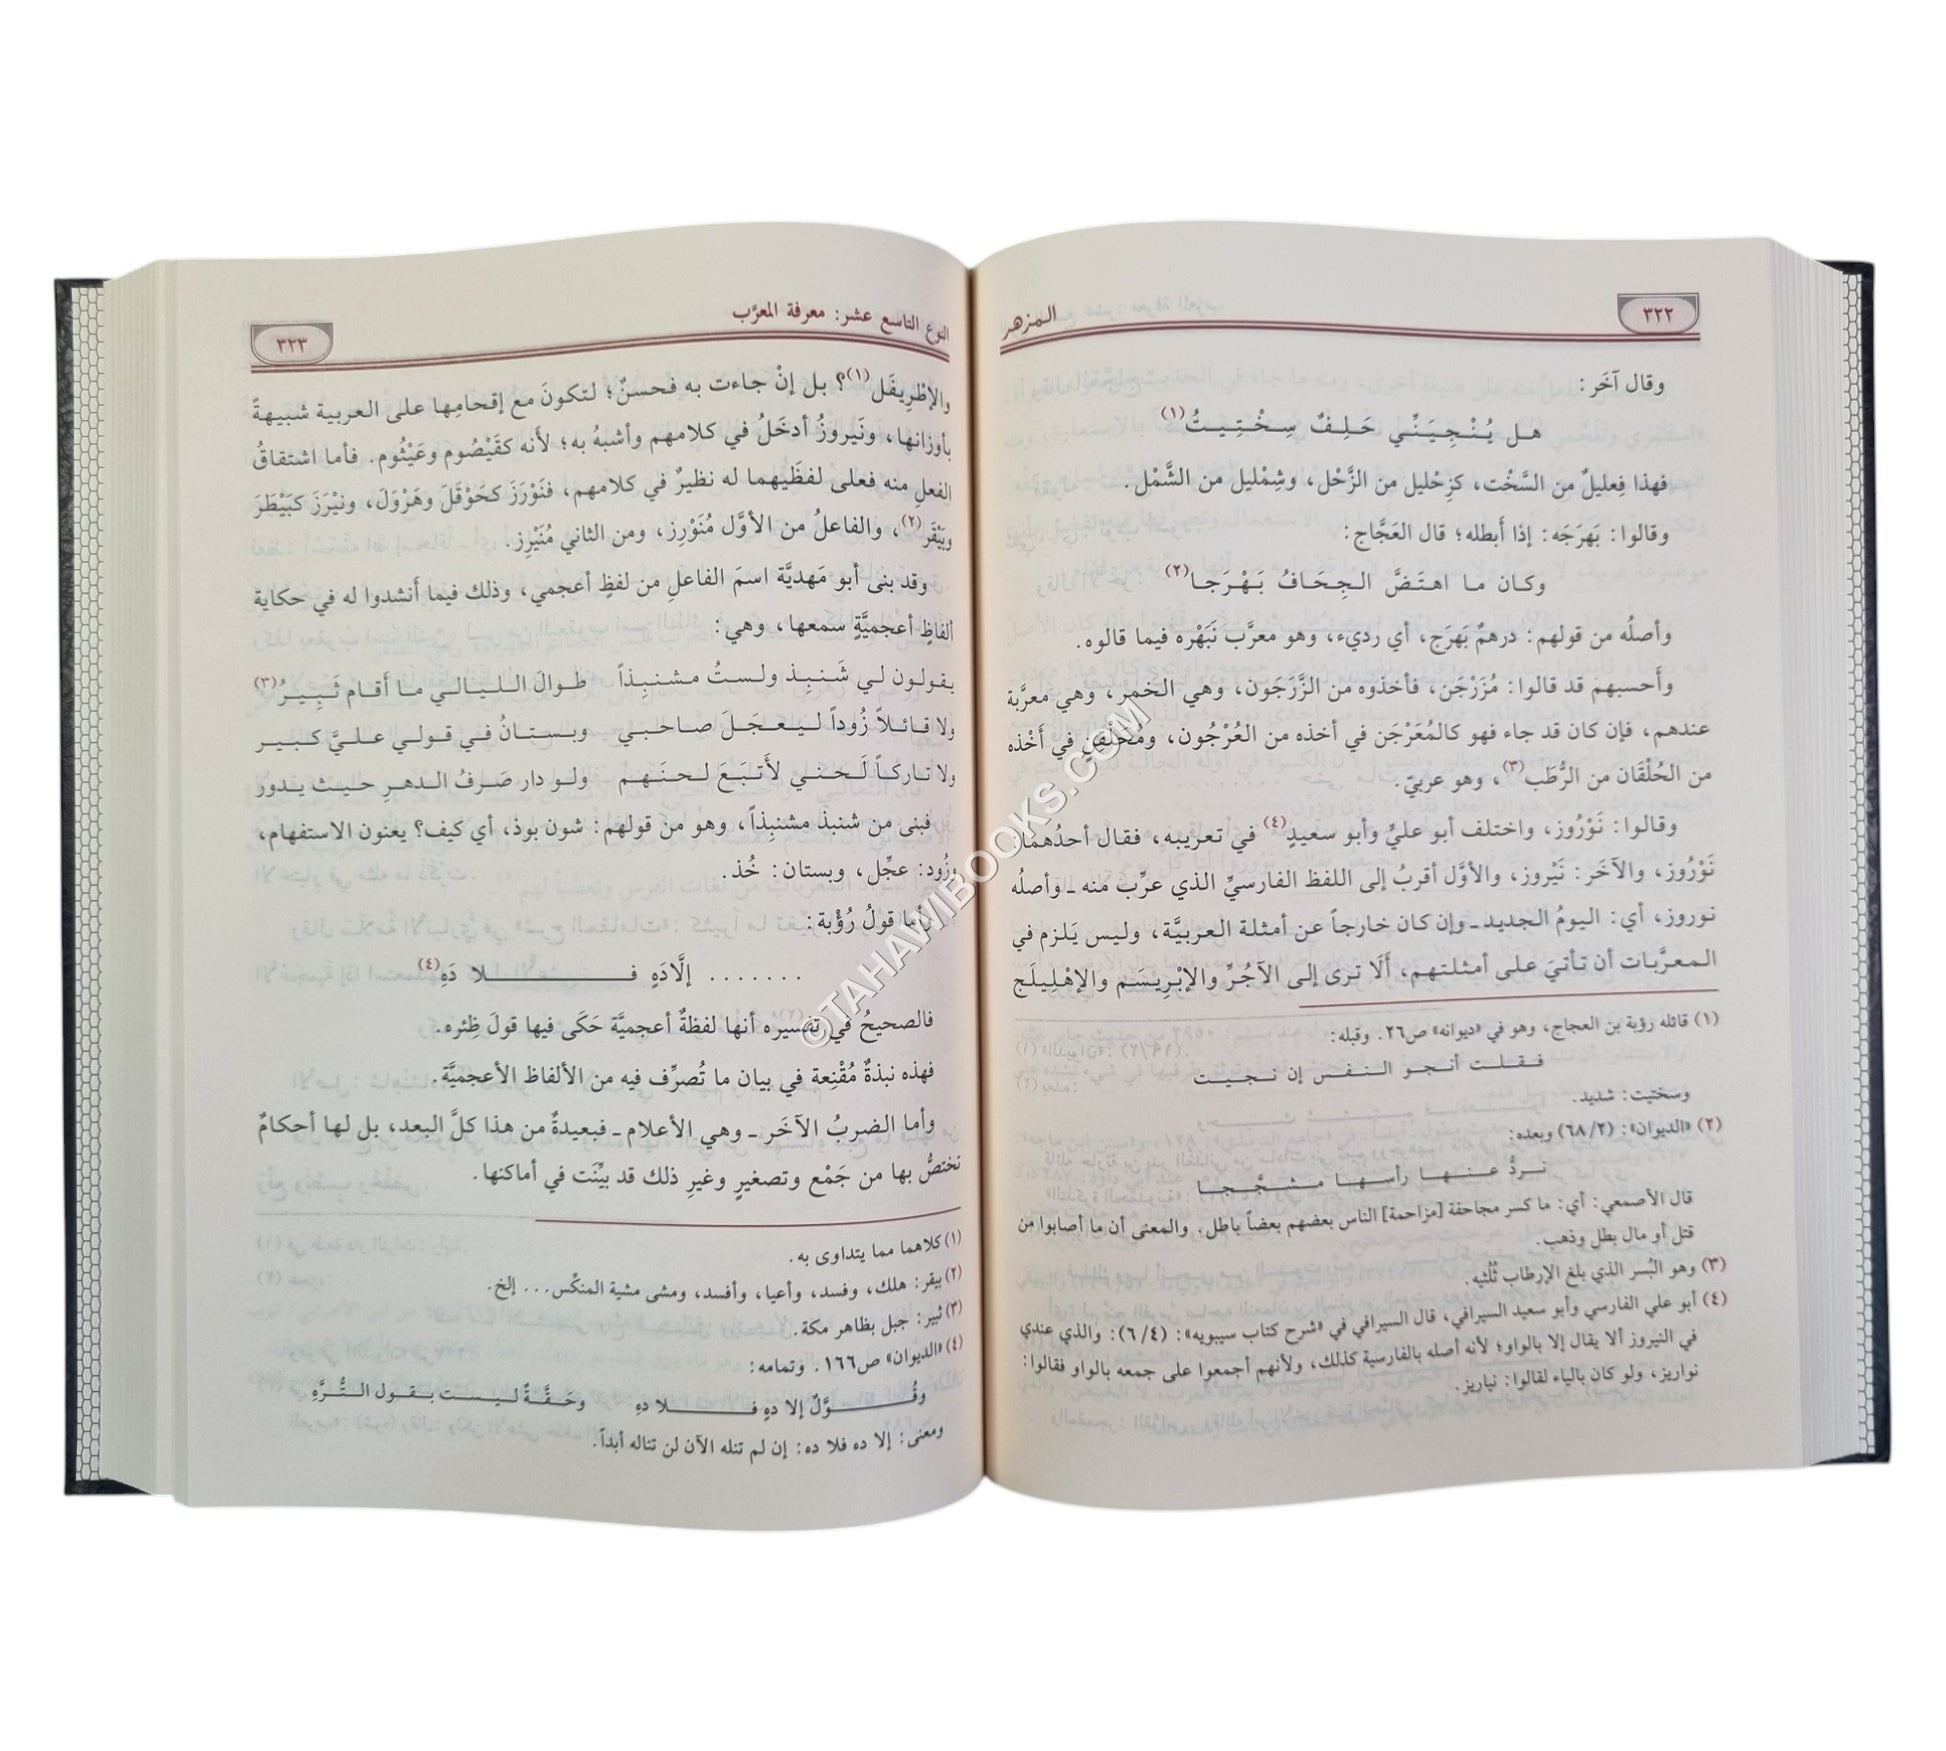 ٣٢٢
المزهر
وقال آخَر:
هـل يُـنْـجِـيَـنِّـي حَـلِـفٌ سِـخْـتِـيـتُ(١)
فهذا فِعليلٌ من السَّخْت، كزِحْليل من الزَّحْل، وشِمْليل من الشَّمْل.
وقالوا: بَهرَجَه: إذا أبطله؛ قال العَجَّاج:
وكـان مـا اهـتَـضَّ الـجِـحَـافُ بَـهْـرَجـا(٢)
وأصلُه من قولهم: درهمٌ بَهرَج، أي رديء، وهو معرَّب نَبَهْره فيما قالوه.
وأَحسبهم قد قالوا: مُزَرْجَن، فأخذوه من الزَّرَجَون، وهي الخمر، وهي معرَّبة
عندهم، فإن كان قد جاء فهو كالمُعَرْجَن في أخذه من العُرْجُون، ومُحَلْقِنٍ في أَخْذه
من الحُلْقَان من الرُّطَب(٣)، وهو عربيّ.
وقالوا: نَوْرُوز، واختلف أبو عليٍّ وأبو سعيدٍ(٤) في تعريبه، فقال أحدُهما:
نَوْرُوز، والآخَر: نَيْروز، والأوَّل أقربُ إلى اللفظ الفارسيِّ الذي عرِّب منه ـ وأصلُه
نوروز، أي: اليومُ الجديد ـ وإن كان خارجاً عن أمثلة العربيَّة، وليس يَلزم في
المعرَّبات أن تأتيَ على أمثلتهم، أَلَا ترى إلى الآجُرِّ والإبْرِيسَم والإهْلِيلَج
(١) قائله رؤبة بن العجاج، وهو في «ديوانه» ص٢٦. وقبله:
فـقـلـت أنـجـو الـنـفـس إن نـجـيـت
وسختيت: شديد.
(٢) «الديوان»: (٢/ ٦٨) وبعده:
نـردُّ عـنـهـا رأسـهـا مـشـجَّـجـا
قال الأصمعي: أي: ما كسر مجاحفة [مزاحمة] الناس بعضهم بعضاً باطل. والمعنى أن ما أصابوا من
قتل أو مال بطل وذهب.
(٣) وهو البُسر الذي بلغ الإرطاب ثُلُثيه.
(٤) أبو علي الفارسي وأبو سعيد السيرافي، قال السيرافي في «شرح كتاب سيبويه»: (٤/ ٦): والذي عندي
في النيروز ألا يقال إلا بالواو؛ لأنه أصله بالفارسية كذلك، ولأنهم أجمعوا على جمعه بالواو فقالوا:
نواريز، ولو كان بالياء لقالوا: نياريز.
النوع التاسع عشر: معرفة المعرَّب
٣٢٣
والإطْرِيفَل(١)؟ بل إنْ جاءت به فحسنٌ؛ لتكونَ مع إقحامِها على العربية شبيهةً
بأوزانها، ونَيروزُ أدخَلُ في كلامهم وأشبهُ به؛ لأنه كقَيْصُوم وعَيْثُوم. فأما اشتقاقُ
الفعلِ منه فعلى لفظَيهما له نظيرٌ في كلامهم، فنَوْرَزَ كحَوْقَلَ وهَرْوَلَ، ونيْرَزَ كبَيْطَرَ
وبَيْقَر(٢)، والفاعلُ من الأوَّل مُنَوْرِز، ومن الثاني مُنَيْرِز.
وقد بنى أبو مَهديَّة اسمَ الفاعلِ من لفظٍ أعجمي، وذلك فيما أَنشدوا له في حكاية
ألفاظٍ أعجميَّةٍ سمعها، وهي:
يـقـولـون لـي شَـنـبِـذ ولـسـتُ مـشـنـبِـذاً طـوالَ الـلـيـالـي مـا أقـام ثَـبِـيـرُ(٣)
ولا قـائـلاً زُوداً لـيـعـجَـلَ صـاحـبـي وبـسـتـانُ فـي قـولـي عـلـيَّ كـبـيـر
ولا تـاركـاً لَـحـنـي لأتـبَـعَ لـحـنَـهـم ولـو دار صَـرفُ الـدهـرِ حـيـث يـدور
فبنى من شنبذ مشنبِذاً، وهو من قولهم: شون بوذ، أي كيف؟ يعنون الاستفهام،
وزُود: عجِّل، وبستان: خُذ.
وأما قولُ رُؤْبة:
. . . . . . . إلَّادَهٍ فـــــلا دَهِ(٤)
فالصحيحُ في تفسيره أنها لفظةٌ أعجميَّة حَكَى فيها قولَ ظِئره.
فهذه نبذةٌ مُقْنِعة في بيان ما تُصرِّف فيه من الألفاظ الأعجميَّة.
وأما الضربُ الآخَر ـ وهي الأعلام ـ فبعيدةٌ من هذا كلَّ البعد، بل لها أحكامٌ
تختصُّ بها من جَمْع وتصغيرٍ وغيرِ ذلك قد بيِّنَت في أماكنها.
(١) كلاهما مما يتداوى به.
(٢) بيقر: هلك، وفسد، وأعيا، وأفسد، ومشى مشية المنكِّس... إلخ.
(٣) ثبير: جبل بظاهر مكة.
(٤) «الديوان» ص١٦٦. وتمامه:
وقُــوَّلٌ إلا دهٍ فــــلا دهِ وحَـقَّـةٌ لـيـسـت بـقـول الـتُّـرَّهِ
ومعنى: إلا ده فلا ده: إن لم تنله الآن لن تناله أبداً.
©TAHAWIBOOKS.COM